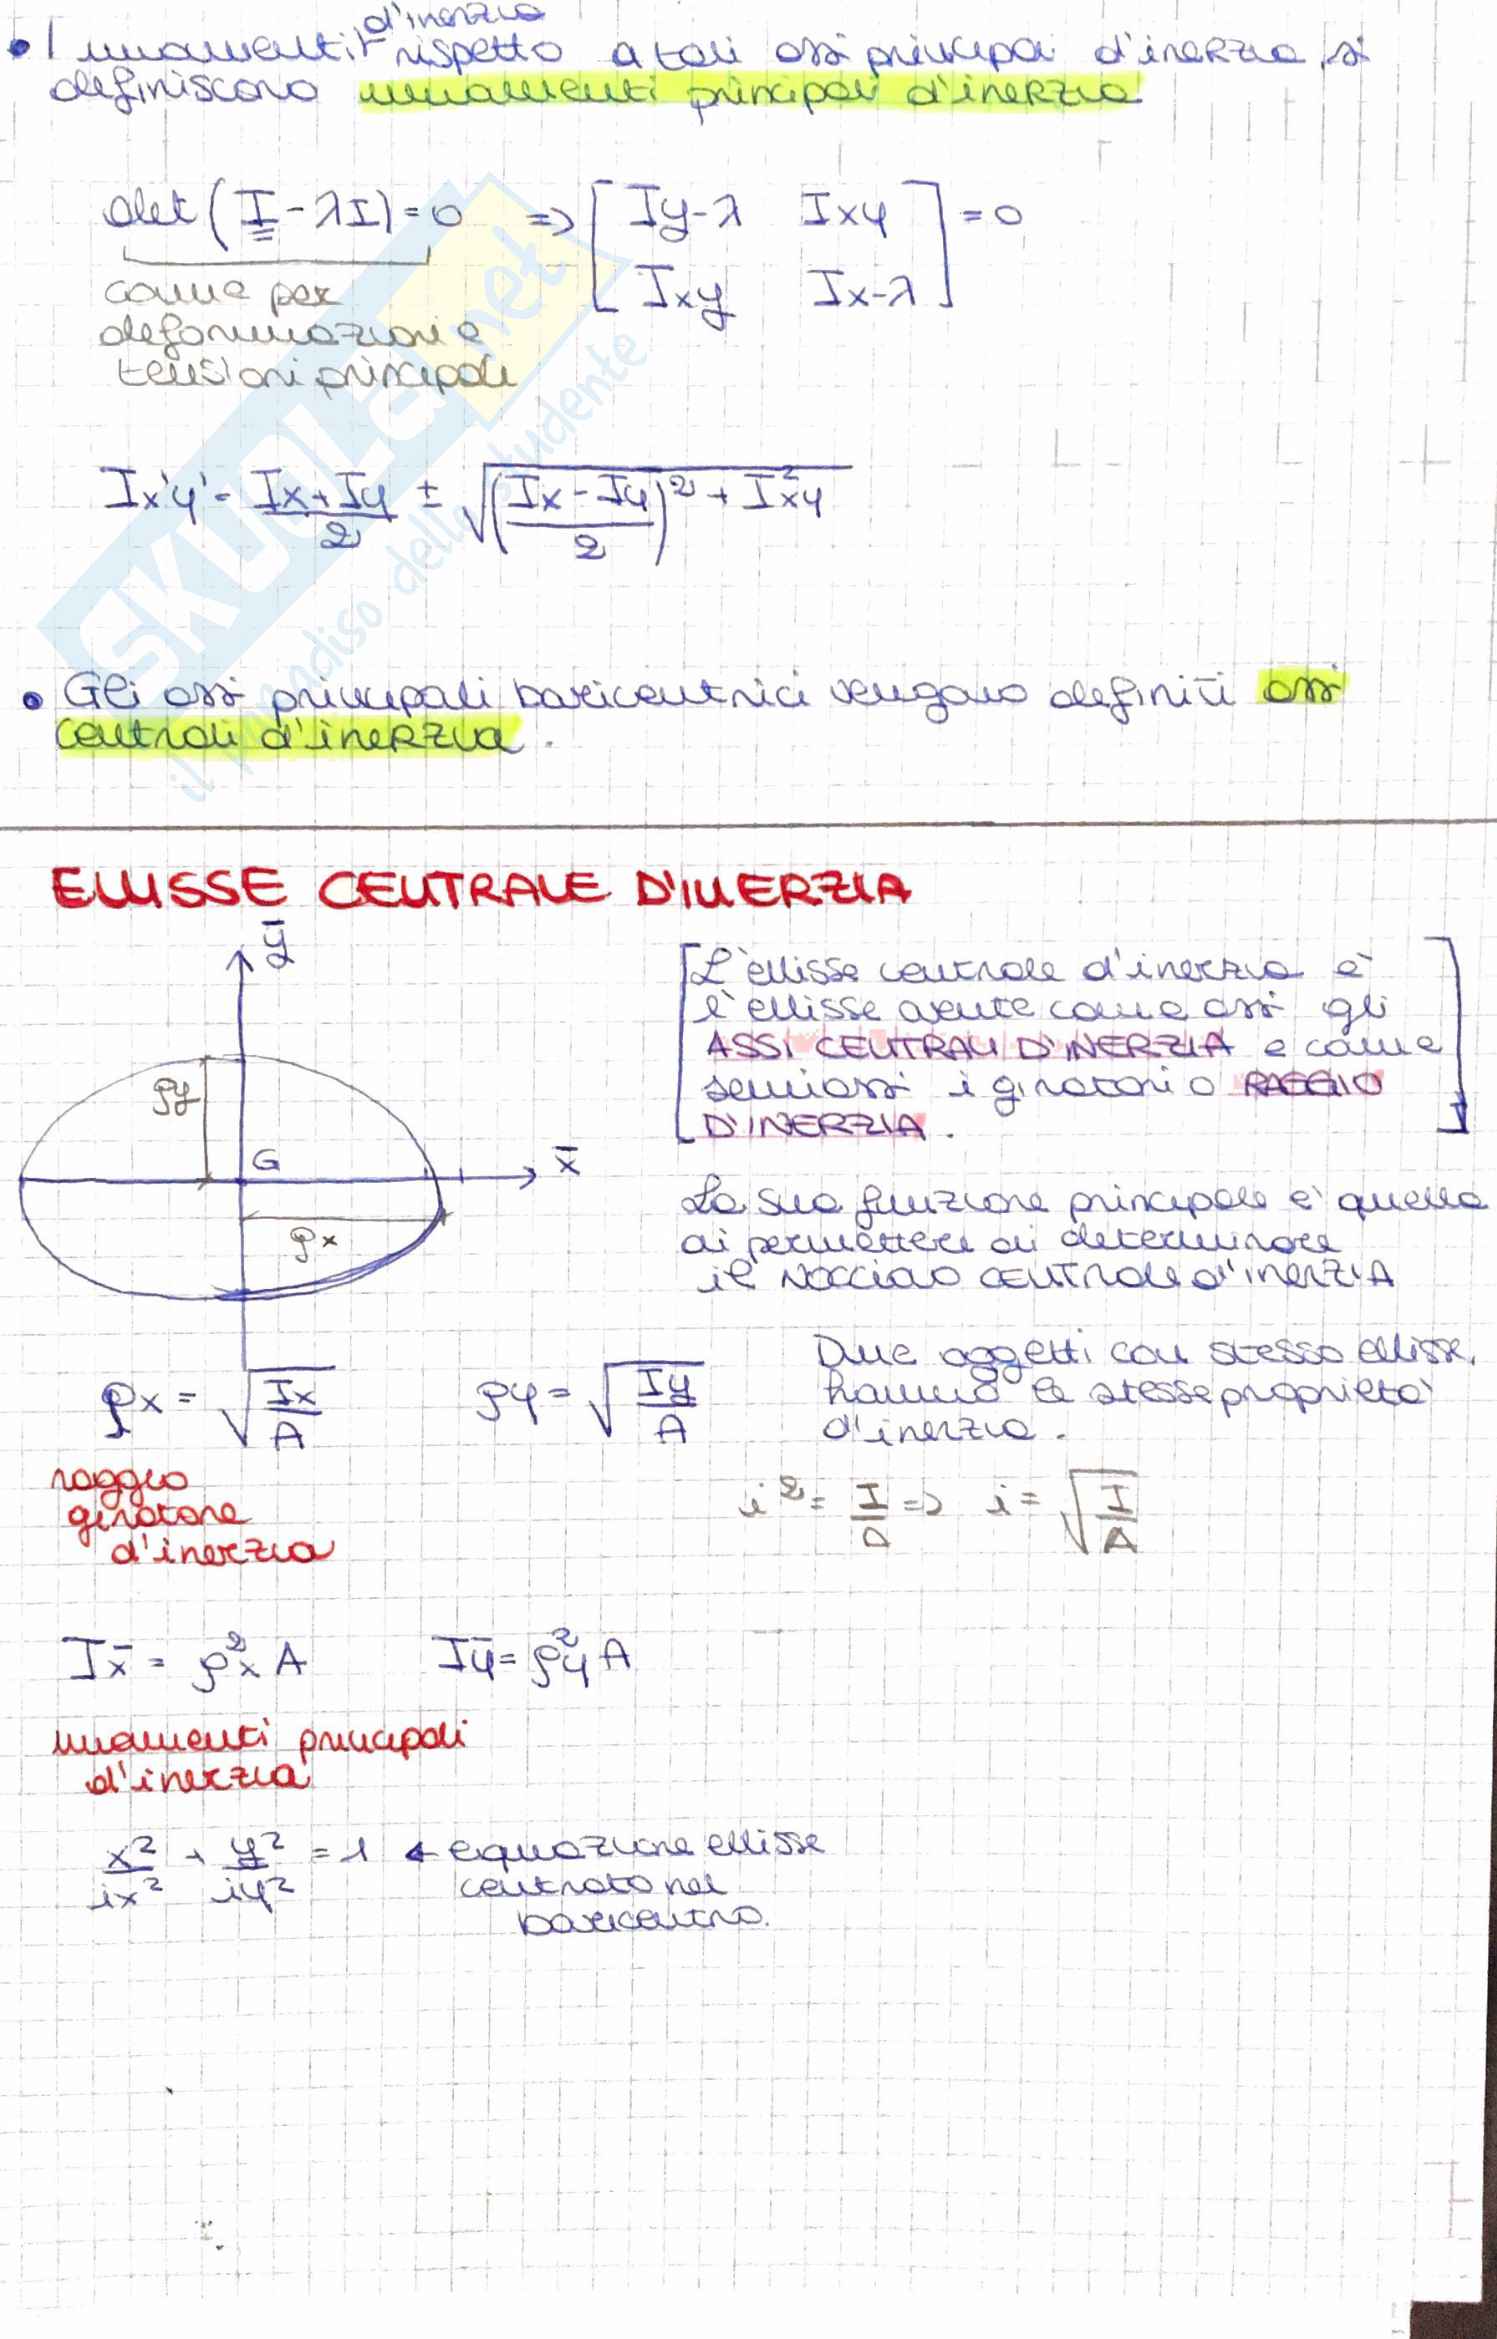 d'inerzia
• I momenti rispetto a tali assi principali d'inerzia, si
definiscono momenti principali d'inerzia
det (I - λI) = 0 => [ Iy-λ Ixy ] = 0
[ Ixy Ix-λ ]
come per
deformazioni e
tensioni principali
Ix'y' = Ix+Iy / 2 ± √((Ix-Iy / 2)² + I²xy)
• Gli assi principali baricentrici vengono definiti assi
centrali d'inerzia.
SKUOLA.net
il paradiso dello studente
ELLISSE CENTRALE D'INERZIA
ȳ
L'ellisse centrale d'inerzia è
l'ellisse avente come assi gli
ASSI CENTRALI D'INERZIA e come
semiassi i giratori o RAGGIO
D'INERZIA.
ρy
G
x̄
ρx
La sua funzione principale è quella
di permettere di determinare
il NOCCIOLO CENTRALE d'INERZIA
ρx = √(Ix / A) ρy = √(Iy / A)
Due oggetti con stesso ellisse,
hanno le stesse proprietà
d'inerzia.
raggio
giratore
d'inerzia
i² = I / A => i = √(I / A)
Ix̄ = ρ²x A Iȳ = ρ²y A
momenti principali
d'inerzia
x² / ix² + y² / iy² = 1 ← equazione ellisse
centrato nel
baricentro.